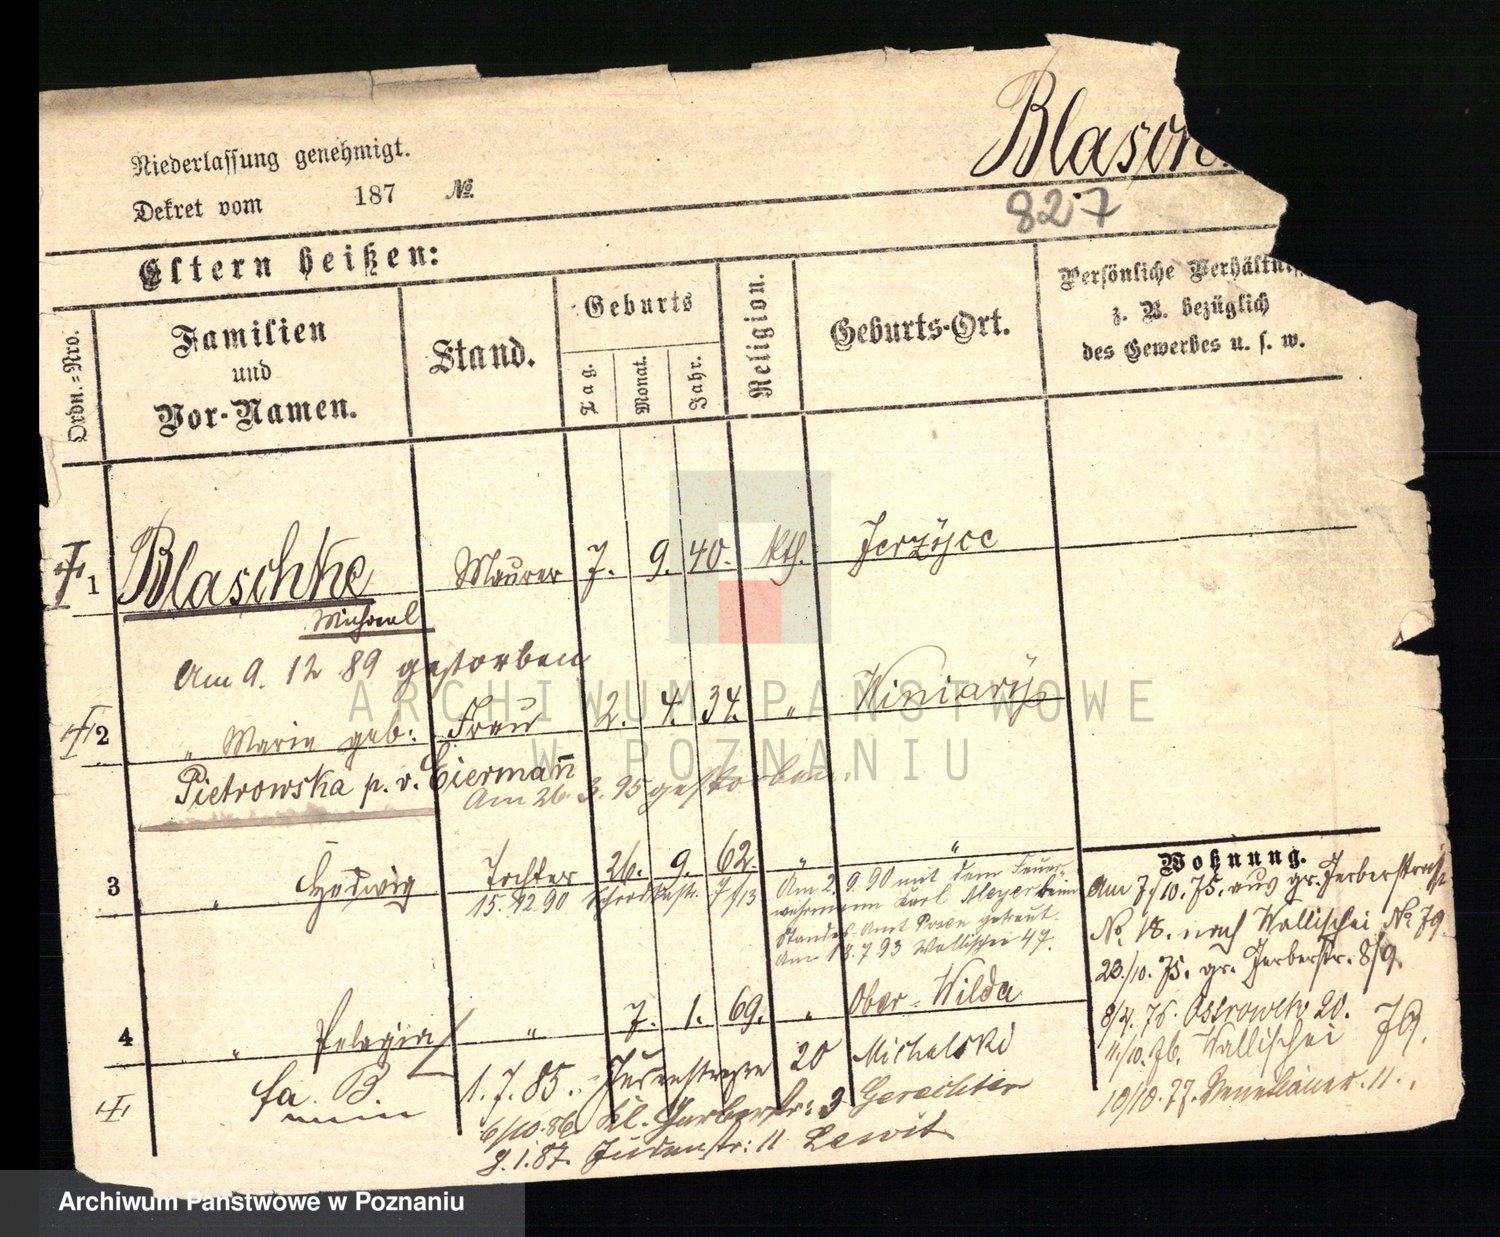 Niederlassung genehmigt.
Dekret vom 187 №
Blasch
827
Eltern heißen:
Ordn.-Nro.
Familien
und
Vor-Namen.
Stand.
Geburts
Tag.
Monat.
Jahr.
Religion.
Geburts-Ort.
Persönliche Verhältni
z. B. bezüglich
des Gewerbes u. s. w.
1 Blaschke Maurer 7. 9. 40. kth. Jerzÿce
Michael
Am 9. 12 89 gestorben
2 " Marie geb: Frau 2. 4. 34. " Winiarÿ
Pietrowska p. v. Eiermañ
Am 26. 3. 95 gestorben.
3 " Hedwig Tochter 26. 9. 62. " "
15. 12 90
Am 2. 9. 90 mit dem Feuer-
wehrmann Karl Meyer beim
Standes Amt Posen getraut.
Am 18. 7 93 Wallischei 47.
4 " Pelagia " 7. 1. 69. " Ober-Wilda
fa. B.
1. 7. 85. 20 Michalski
6/10. 86. Kl. Gerberstr: 3 Gerechter
3. 1. 87. Judenstr: 11 Lewit
Wohnung.
Am 7/10. 75. aus gr. Gerberstrasse
No. 18. nach Wallischei No 79.
23./10. 75. gr. Gerberstr. 8/9.
8/4. 76. Ostrowek 20.
11./10. 76. Wallischei 79.
10/10. 77. 11.
Archiwum Państwowe w Poznaniu
ARCHIWUM PAŃSTWOWE
W POZNANIU